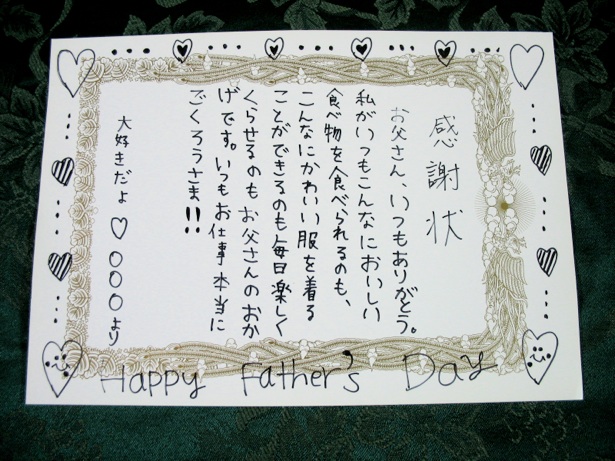 感謝状
お父さん、いつもありがとう。
私がいつもこんなにおいしい
食べ物を食べられるのも、
こんなにかわいい服を着る
ことができるのも毎日楽しく
くらせるのもお父さんのおか
げです。いつもお仕事本当に
ごくろうさま!!
大好きだよ♡〇〇〇より
Happy Father's Day